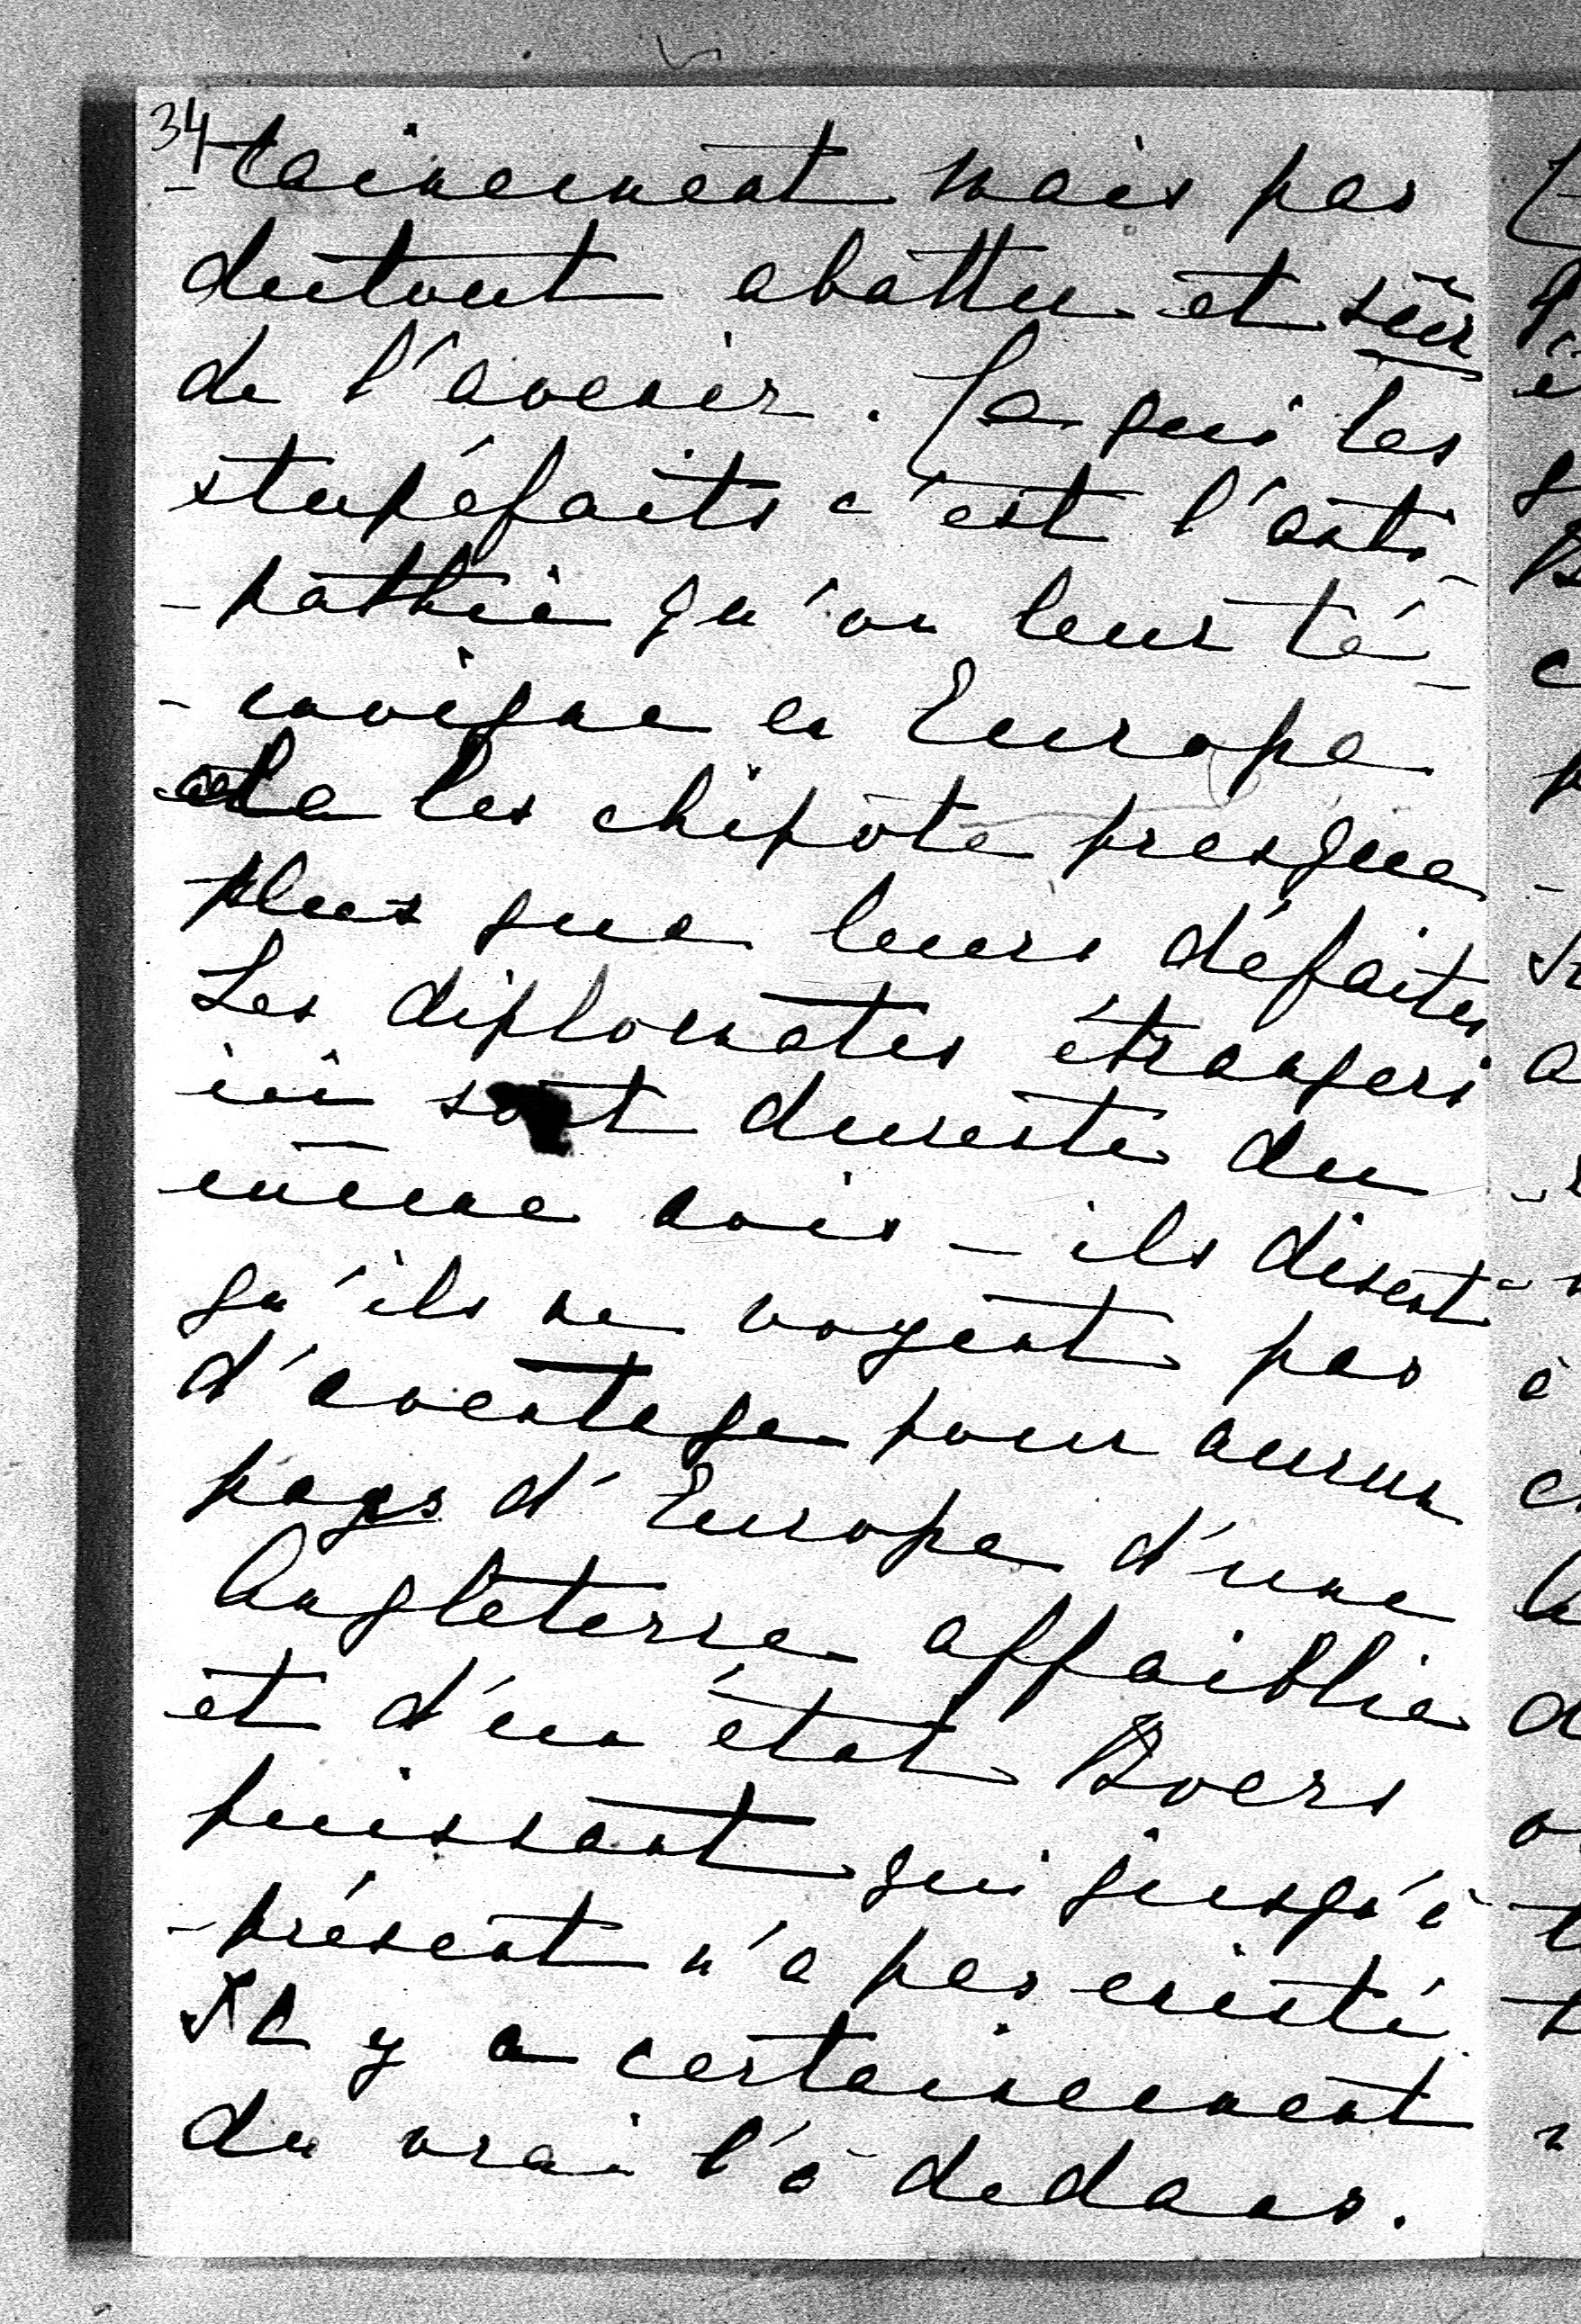 34
-tainement mais pas
dutout abattu et sûr
de l'avenir. Ce qui les
stupéfaits c'est l'anti-
-pathie qu'on leur té-
-moigne en Europe
cela les chipote presque
plus que leurs défaites
Les diplomates étrangers
ici sont dureste du
même avis - ils disent
qu'ils ne voyent pas
d'aventage pour aucun
pays d'Europe d'une
Angleterre affaiblie
et d'un état Boers
puissant qui jusqu'à
-présent n'a pas existé.
Il y a certainement
du vrai l'à dedans.